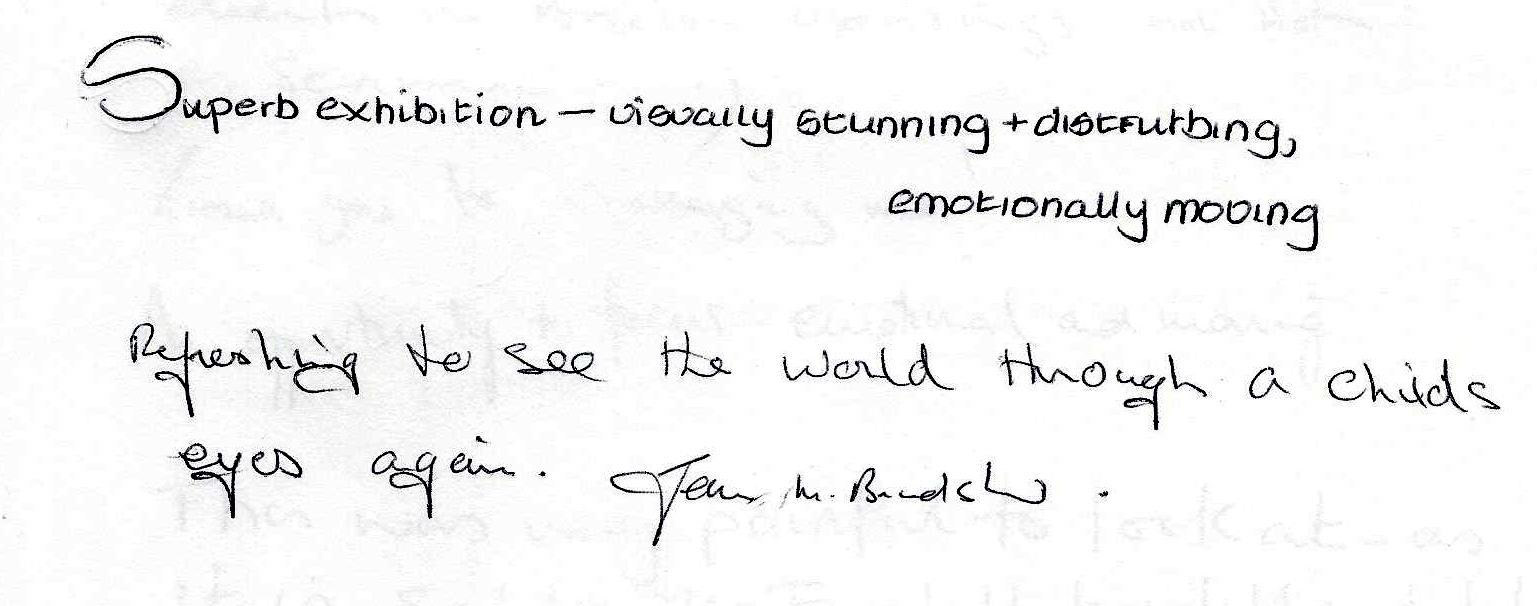 Superb exhibition – visually stunning + disturbing,
emotionally moving
Refreshing to see the world through a childs
eyes again. Jean M. Bradshaw.